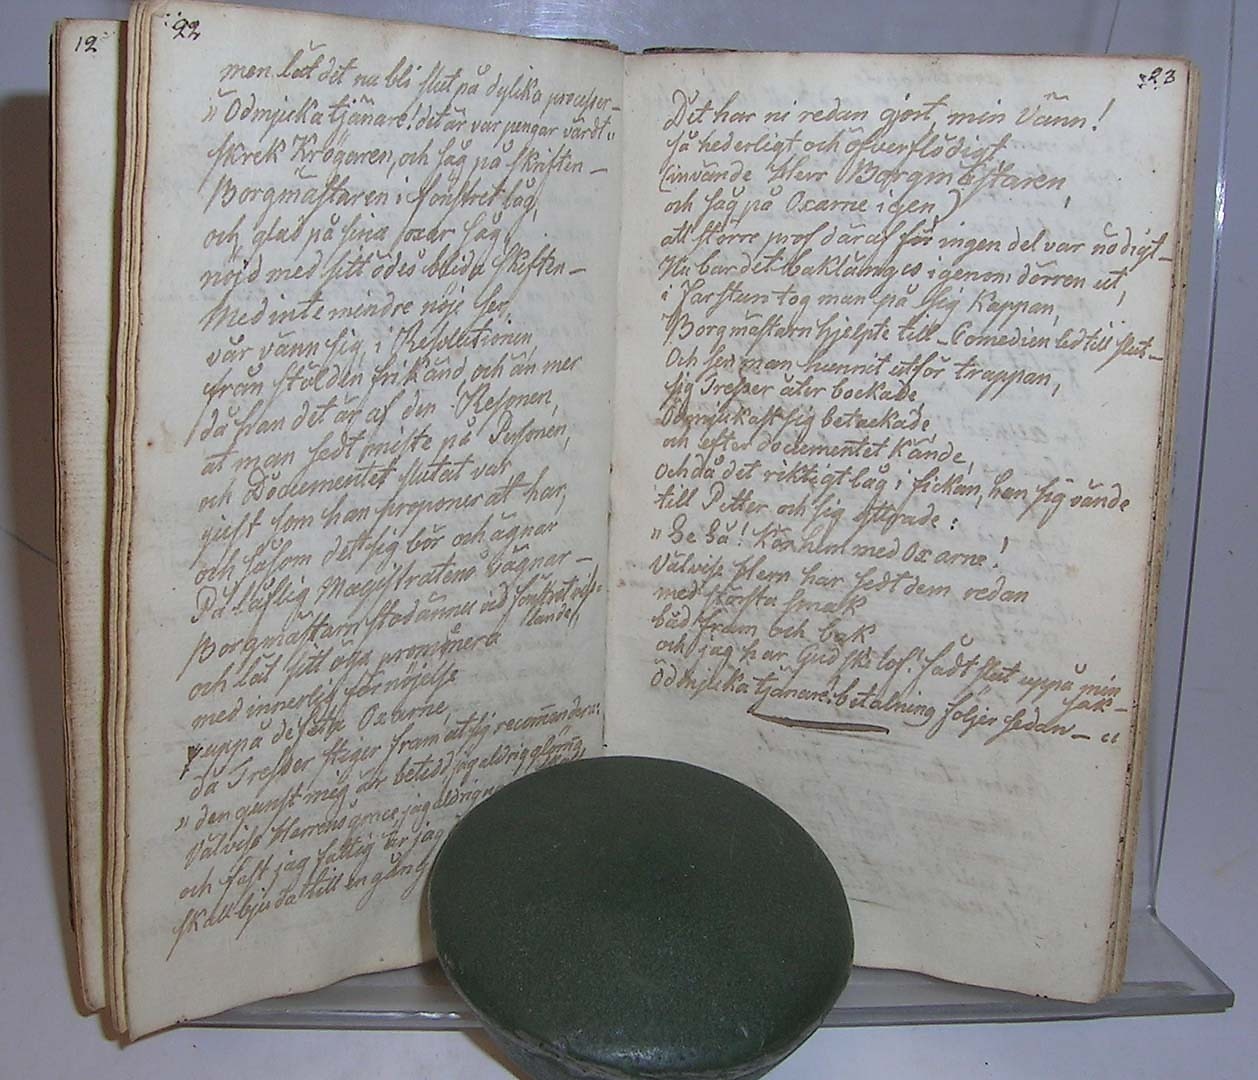 12
22
men låt det nu bli slut på dylika processer—
"Ödmjuka tjänare! det är var pengar värdt"
skrek Krögaren, och såg på skriften—
Borgmästaren i fönstret låg,
och glad på sina oxar såg,
nöjd med sitt ödes blida skiften—
Med inte mindre nöje ser,
vår vänn sig i Resolutionen,
från stölden frikänd, och än mer
då han det är af den Resonen,
at man sedt miste på Personen,
och Documentet slutat var
just som han proponerat har,
och såsom det sig bör och ägnar
På Laflig Magistratens vägnar—
Borgmästarn stod ännu vid fönstret
och lät sitt öga promenera
med innerlig förnöjelse
uppå de feta Oxarne,
då Tresser steger fram at sig recommendera:
"den gunst mig är betedd jag aldrig glömma
Välvise Herrens jag aldrig
och fast jag fattig är jag
skall bjuda till en gång
23
Det har ni redan gjort, min Vänn!
så hederligt och öfverflödigt
(invände Herr Borgmästaren,
och såg på Oxarne igen)
att större prof däraf för ingen del var nödigt—
Nu bar det baklänges igenom dörren ut,
i Farstun tog man på sig Kappan,
Borgmästarn hjelpte till—Comedien led till slut—
Och sen man hunnit utför trappan,
sig Tresser åter bockade
Ödmjukast sig betackade,
och efter documentet kände,
och då det riktigt låg i fickan, han sig vände
till Petter och sig yttrade:
"Se så! Kör hem med Oxarne!
Välvise Hern har sedt dem redan
med största smak
båd fram och bak
och jag har Gud ske lof! fådt slut uppå min
sak—
Ödmjuka tjänare! betalning följer sedan—"